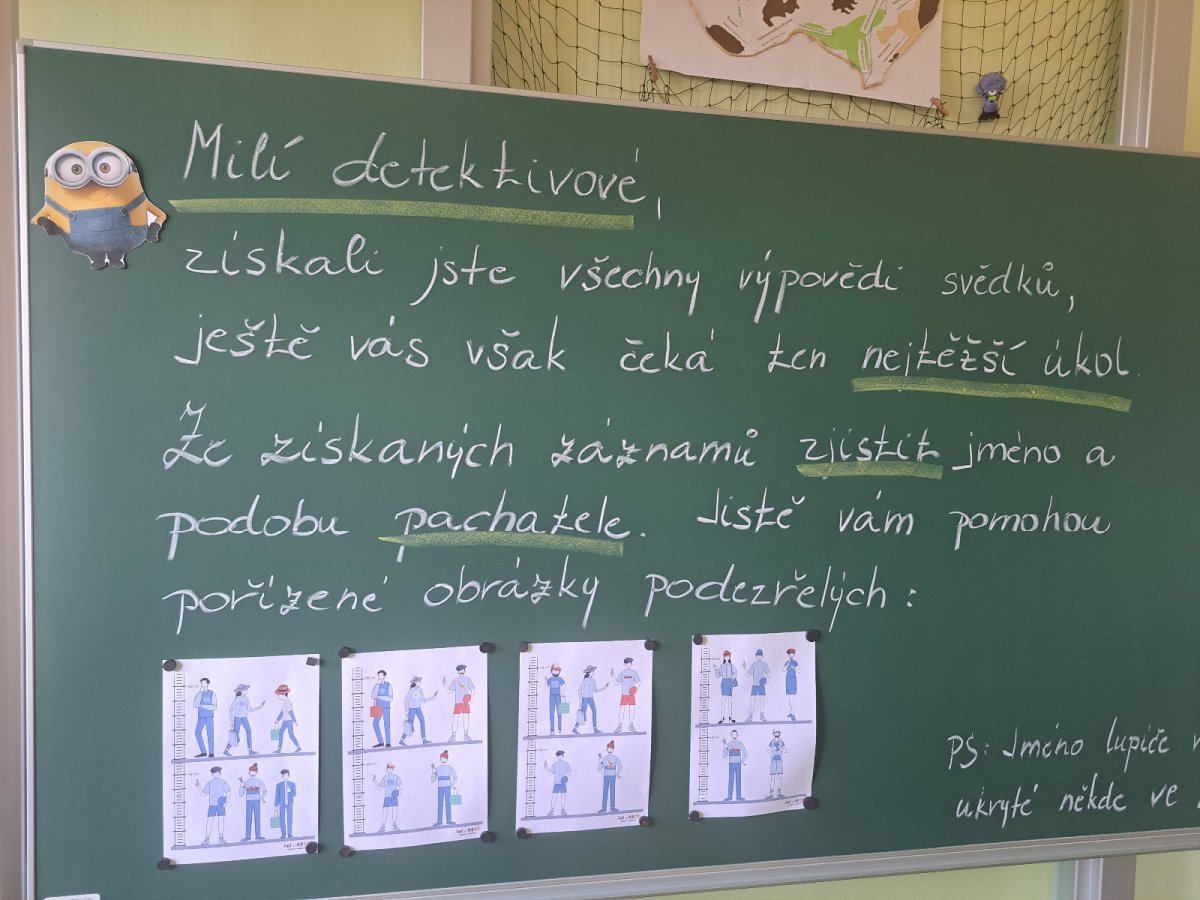 Milí detektivové,
získali jste všechny výpovědi svědků,
ještě vás však čeká ten nejtěžší úkol.
Ze získaných záznamů zjistit jméno a
podobu pachatele. Jistě vám pomohou
pořízené obrázky podezřelých:
PS: Jméno lupiče
ukryté někde ve